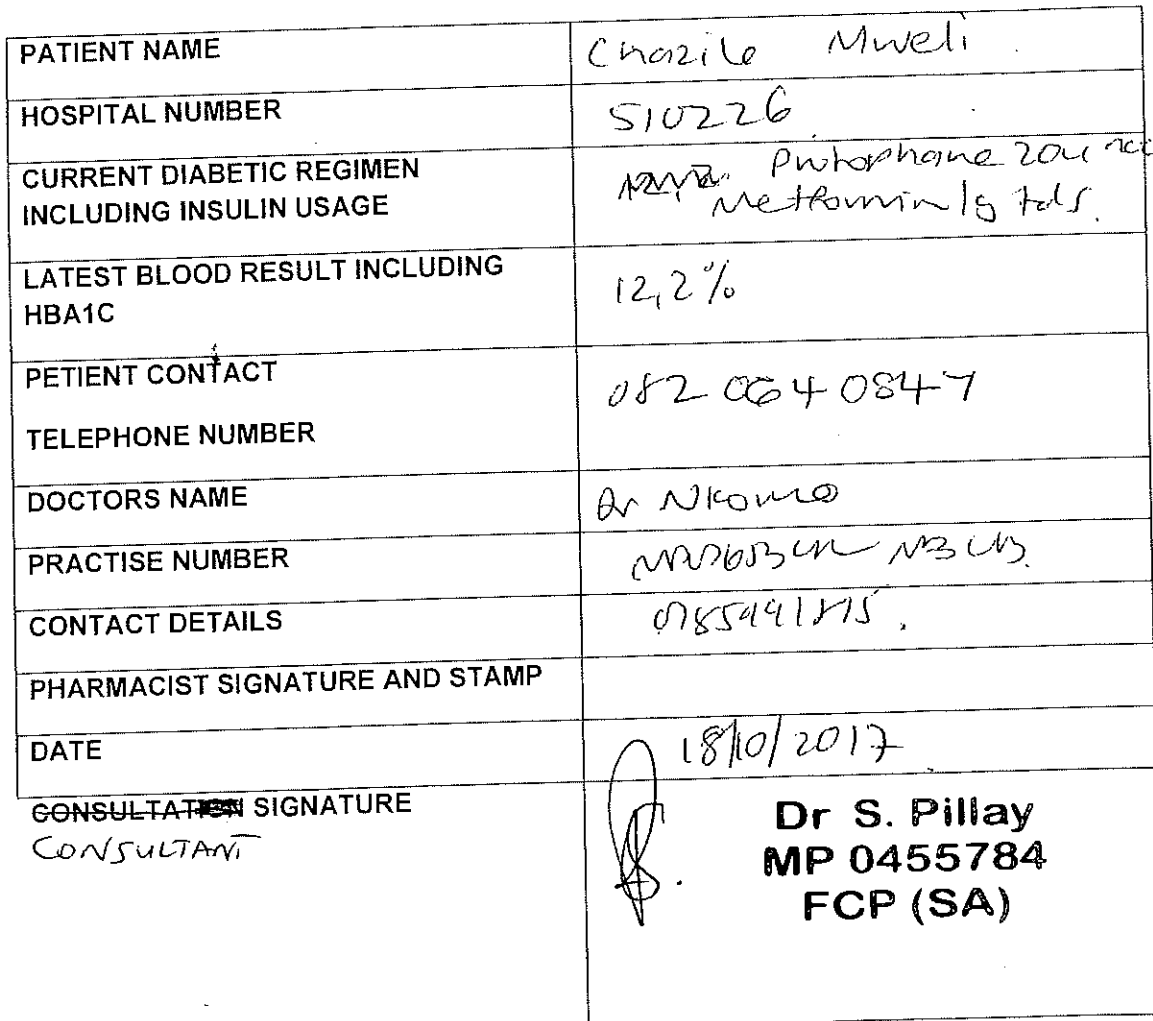 PATIENT NAME Mweli
HOSPITAL NUMBER 510226
CURRENT DIABETIC REGIMEN Protophane 20u
INCLUDING INSULIN USAGE Metformin 1g tds.
LATEST BLOOD RESULT INCLUDING
HBA1C 12,2%
PETIENT CONTACT 082 064 0847
TELEPHONE NUMBER
DOCTORS NAME Dr Nkomo
PRACTISE NUMBER
CONTACT DETAILS
PHARMACIST SIGNATURE AND STAMP
DATE 18/10/2017
CONSULTATION SIGNATURE
CONSULTANT
Dr S. Pillay
MP 0455784
FCP (SA)